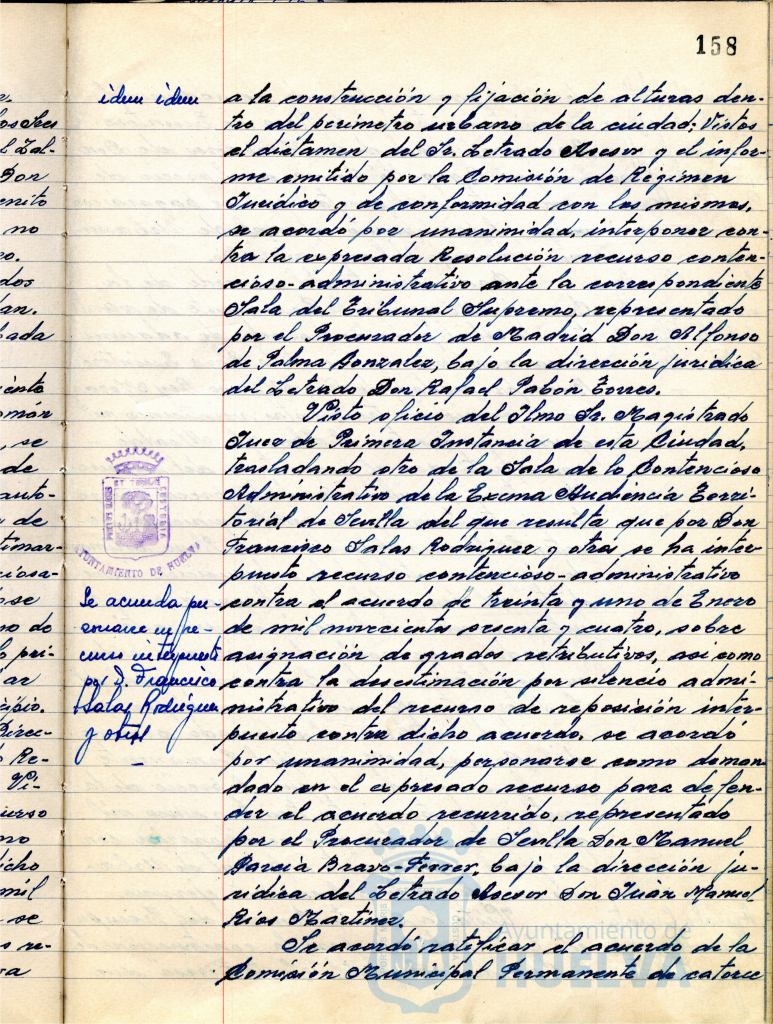 158
idem idem
a la construcción y fijación de alturas den-
tro del perímetro urbano de la ciudad; Vistos
el dictamen del Sr. Letrado Asesor y el infor-
me emitido por la Comisión de Régimen
Jurídico y de conformidad con los mismos,
se acordó por unanimidad, interponer con-
tra la expresada Resolución recurso conten-
cioso-administrativo ante la correspondiente
Sala del Tribunal Supremo, representado
por el Procurador de Madrid Don Alfonso
de Palma Gonzalez, bajo la dirección jurídica
del Letrado Don Rafael Pabón Torres.
Visto oficio del Ilmo Sr. Magistrado
Juez de Primera Instancia de esta Ciudad,
trasladando otro de la Sala de lo Contencioso
Administrativo de la Excma Audiencia Terri-
torial de Sevilla del que resulta que por Don
Francisco Salas Rodriguez y otros se ha inter
puesto recurso contencioso-administrativo
contra el acuerdo de treinta y uno de Enero
de mil novecientos sesenta y cuatro, sobre
asignación de grados retributivos, asi como
contra la desestimación por silencio admi-
nistrativo del recurso de reposición inter-
puesto contra dicho acuerdo, se acordó
por unanimidad, personarse como deman
dado en el expresado recurso para defen-
der el acuerdo recurrido, representado
por el Procurador de Sevilla Don Manuel
García Bravo-Ferrer, bajo la dirección ju-
ridica del Letrado Asesor Don Juan Manuel
Ríos Martínez.
Se acordó ratificar el acuerdo de la
Comisión Municipal Permanente de catorce
Se acuerda per-
sonarse en re-
curso interpuesto
por D. Francisco
Salas Rodriguez
y otros
PORTUS MARIS ET TERRAE CUSTODIA
AYUNTAMIENTO DE HUELVA
Ayuntamiento de
HUELVA